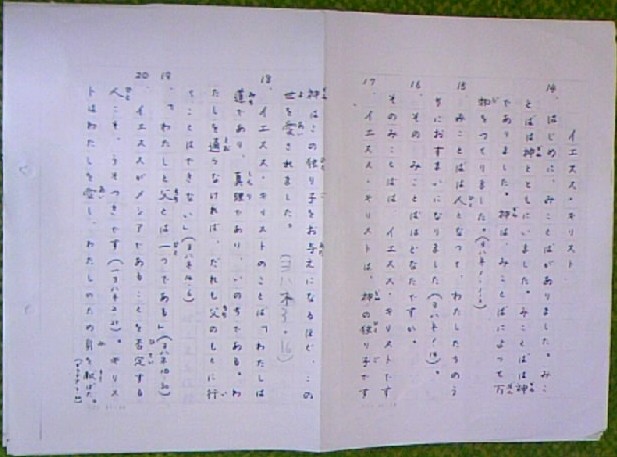 イエスス・キリスト
14、はじめに、みことばがありました。みこ
とばは神とともにいました。みことばは神
でありました。神は、みことばによって万
物をつくりました。(ヨハネ1・1-3)
15、みことばは人となって、わたしたちのう
ちにおすまいになりました(ヨハネ1・14)。
16、その みことばはどなたですか。
そのみことばは イエスス・キリストです
17、イエスス・キリストは、神の独り子です
神はこの独り子をお与えになるほど、この
世を愛されました。(ヨハネ3・16)
18、イエスス・キリストのことば「わたしは
道であり、真理であり、いのちである。わ
たしを通らなければ、だれも父のもとに行
くことはできない」(ヨハネ14・6)
19、「わたしと父とは一つである」(ヨハネ10・30)
20、イエススがメシアであることを否定する
人こそ、うそつきです(一ヨハネ2・22)。キリス
トはわたしを愛し、わたしのため身を献げた。